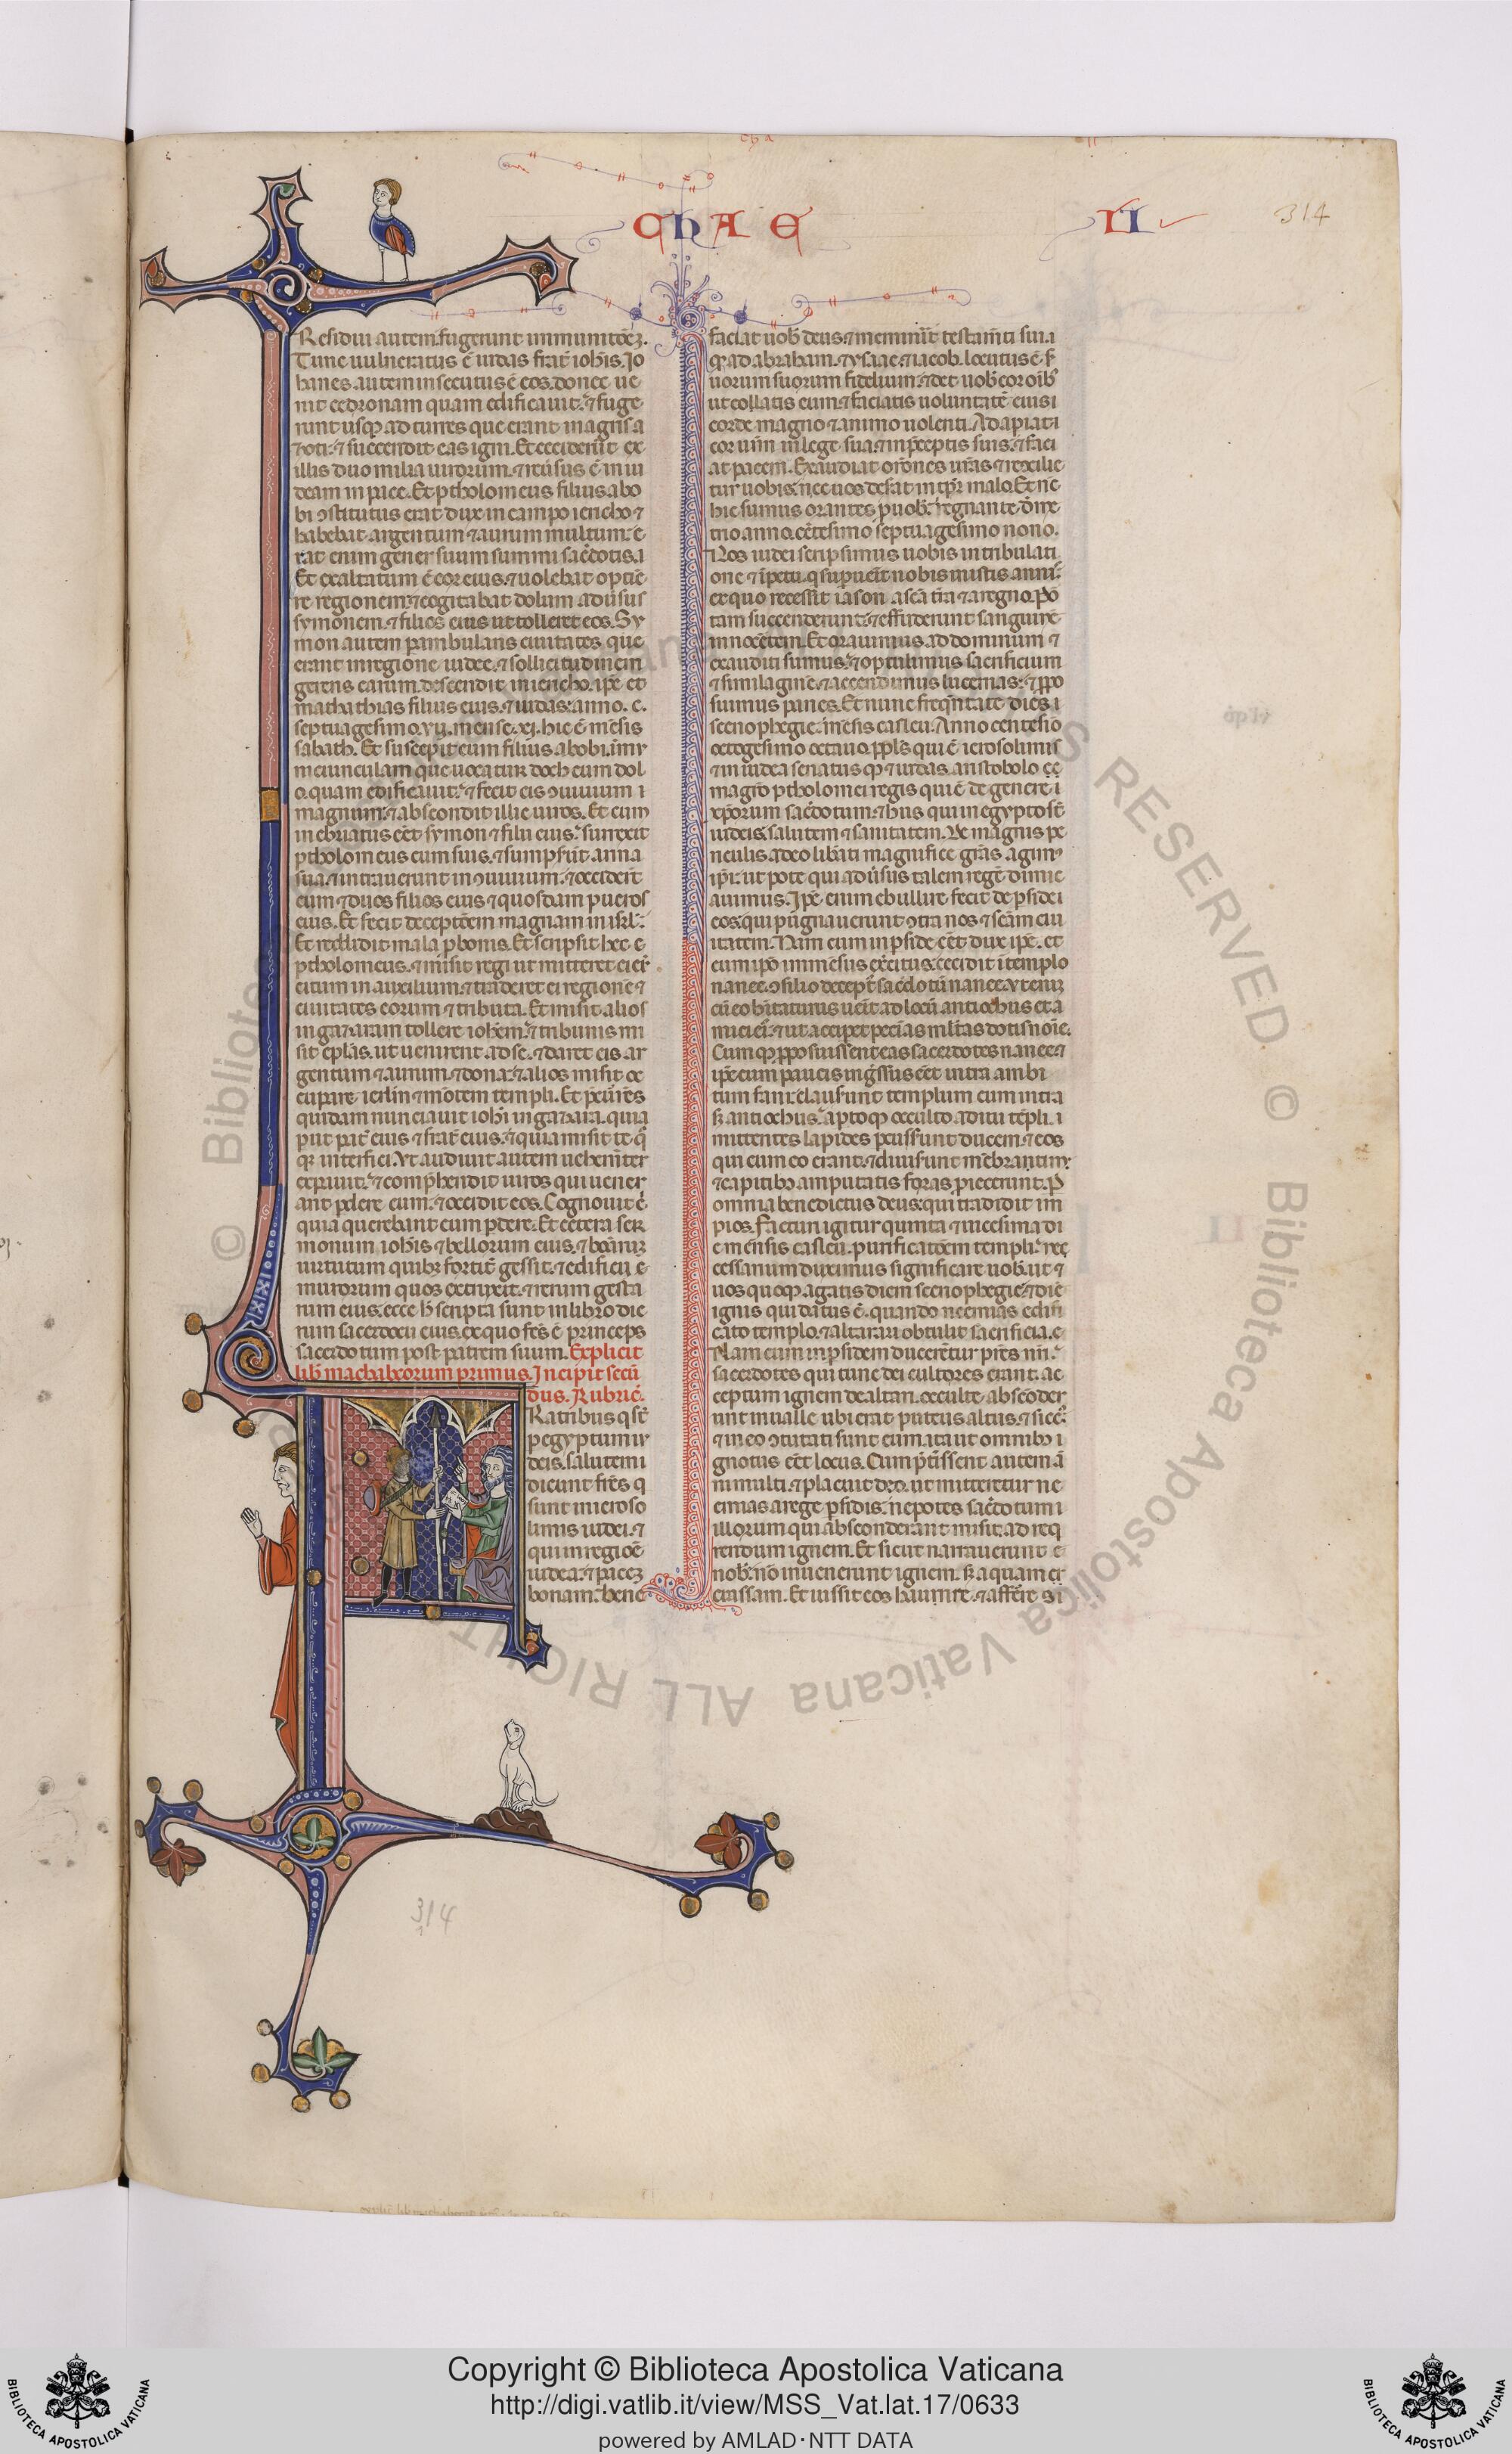 CHAE
LI
314
Residui autem fugerunt in munitōeʒ.
Tunc uulneratus ē iudas frat̄ ioh̄is. Io
hanes autem insecutus ē eos. donec ue
nit cedronam quam edificauit. ⁊ fuge
runt usqꝫ ad turres que erant in agris a
⁊oti. ⁊ succendit eas igni. Et ceciderūt ex
illis duo milia uirorum. ⁊ reūsus ē in iu
deam in pace. Et ptholomeus filius abo
bi ↄstitutus erat dux in campo iericho ⁊
habebat argentum ⁊ aurum multum. e
rat enim gener suum summi sac̄dotis. i
Et exaltatum ē cor eius. ⁊ uolebat optine
re regionem. ⁊ cogitabat dolum adūsus
symonem. ⁊ filios eius ut tolleret eos. Sy
mon autem pambulans ciuitates que
erant in regione iudee. ⁊ sollicitudinem
gerens earum. descendit in iericho. ip̄e et
mathathias filius eius. ⁊ iudas. anno. c.
septuagesimo. vij. mense. xj. hic ē mēsis
sabath. Et suscepit eum filius abobi. in mu
niciunculam que uocatur doch cum dol
o. quam edificauit. ⁊ fecit eis ↄuiuium
magnum. ⁊ abscondit illic uiros. Et cum
inebriatus eēt symon ⁊ filii eius. surrexit
ptholomeus cum suis. ⁊ sumpserūt arma
sua. ⁊ intrauerunt in ↄuiuium. ⁊ occiderūt
eum ⁊ duos filios eius ⁊ quosdam pueros
eius. Et fecit deceptōem magnam in isrl.
Et reddidit mala p bonis. Et scripsit hec
ptholomeus. ⁊ misit regi ut mitteret ei exer
citum in auxilium. ⁊ traderet ei regionē ⁊
ciuitates eorum ⁊ tributa. Et misit alios
in gazaram tollere ioh̄em. ⁊ tribunis mi
sit ep̄las. ut uenirent ad se. ⁊ daret eis ar
gentum ⁊ aurum. ⁊ dona. ⁊ alios misit oc
cupare ierl̄m ⁊ mōtem templi. Et p̄currēs
quidam nunciauit ioh̄i in gazara. quia
piit pat̄ eius ⁊ frat̄s eius. ⁊ quia misit te q̄
qꝫ interfici. Vt audiuit autem uehemēter
expauit. ⁊ comp̄hendit uiros qui uener
ant pdere eum. ⁊ occidit eos. Cognouit ē
quia querebant eum pdere. Et cetera ser
monum ioh̄is ⁊ bellorum eius. ⁊ bonarum
uirtutum quibꝫ fortit̄ gessit. ⁊ edificii
murorum quos extruxit. ⁊ rerum gesta
rum eius. ecce h̄ scripta sunt in libro die
rum sacerdocii eius. ex quo fc̄s ē princeps
sacerdotum post patrem suum. Explicit
lib̄ machabeorum primus. Incipit secū
dus. Rubric̄.
Ratribus q sūt
p egyptum iu
deis. salutem
dicunt fr̄es q
sunt in ieroso
limis iudei. ⁊
qui in regiōe
iudea. ⁊ paceʒ
bonam. bene
faciat uob̄ deus. ⁊ meminīt testam̄ti sui.
qꝫ ad abraham. ⁊ ysaac. ⁊ iacob. locutus ē. s̄
uorum suorum fidelium. ⁊ det uob̄ cor oīb̄
ut collatis eum. ⁊ faciatis uoluntatē eius
corde magno ⁊ animo uolenti. Adapiat
cor ur̄m in lege sua. ⁊ in p̄ceptis suis. ⁊ faci
at pacem. Exaudiat or̄ones ur̄as ⁊ recōcilie
tur uobis. nec uos deserat in tp̄r malo. Et nc̄
hic sumus orantes p uob̄. regnante dme
trio anno. cētesimo septuagesimo nono.
Nos iudei scripsimus uobis in tribulati
one ⁊ īpetu. q supuenit nobis in istis annis.
ex quo recessit iason a sc̄a tr̄a ⁊ a regno. Por
tam succenderunt. ⁊ effuderunt sanguinē
innocētem. Et orauimus ad dominum ⁊
exauditi sumus. ⁊ optulimus sacrificium
⁊ similaginē. ⁊ accendimus lucernas. ⁊ ppo
suimus panes. Et nunc freq̄ntate dies
scenophegie. mēsis casleu. Anno centesīo
octogesimo octauo. ppl̄s qui ē ierosolimis
⁊ in iudea senatus qꝫ ⁊ iudas. aristobolo
magr̄o ptholomei regis qui ē de genere
xp̄orum sac̄dotum. ⁊ hiis qui in egypto sūt
iudeis. salutem ⁊ sanitatem. De magnis pe
riculis a deo lib̄ati magnifice gr̄as agimus
ip̄i. ut pote qui adūsus talem regē dimic
auimus. Ip̄e enim ebullire fecit de pside
eos. qui pugnauerunt ↄtra nos ⁊ sc̄am ciu
itatem. Nam cum in pside eēt dux ip̄e. et
cum ip̄o immēsus exc̄itus. cecidit ī templo
nanee. ↄsilio decept̄ sac̄dotū nanee. Etenim
cū eo h̄itaturus uēit ad locū antiochus et a
mici ei. ⁊ ut accip̄et pecūias ml̄tas dotis noīe.
Cumqꝫ pposuissent eas sacerdotes nanee. ⁊
ip̄e cum paucis inḡssus eēt intra ambi
tum fani. clauserunt templum cum intra
s̄ antiochus. aptoqꝫ occulto aditu tēpli.
mittentes lapides pcusserunt ducem. ⁊ eos
qui cum eo erant. ⁊ diuiserunt mēbratim.
⁊ capitibꝫ amputatis foras piecerunt. P
omnia benedictus deus. qui tradidit im
pios. Facturi igitur quinta ⁊ uicesima di
e mēnsis casleu. purificatōem templi. nec
cessarium duximus significare uob̄. ut ⁊
uos quoqꝫ agatis diem scenophegie. ⁊ diē
ignis qui datus ē. quando neemias edifi
cato templo. ⁊ altari obtulit sacrificia.
Nam cum in psidem ducerētur pr̄es nr̄i.
sacerdotes qui tunc dei cultores erant. ac
ceptum ignem de altari. occulte absconder
unt in ualle ubi erat puteus altus. ⁊ sicc̄.
⁊ in eo ↄtutati sunt eum. ita ut omnibꝫ
ignotus eēt locus. Cum p̄t̄issent autem an
ni multi. ⁊ placuit deo. ut mitteretur ne
emias a rege psidis. nepotes sac̄dotum
illorum qui absconderant misit ad req
rendum ignem. Et sicut narrauerunt
nob̄. nō inuenerunt ignem. s̄ aquam
crassam. Et iussit eos haurire. ⁊ afferre si
314
© Biblioteca Apostolica Vaticana ALL RIGHTS RESERVED
Copyright © Biblioteca Apostolica Vaticana
http://digi.vatlib.it/view/MSS_Vat.lat.17/0633
powered by AMLAD·NTT DATA
BIBLIOTECA APOSTOLICA VATICANA
BIBLIOTECA APOSTOLICA VATICANA